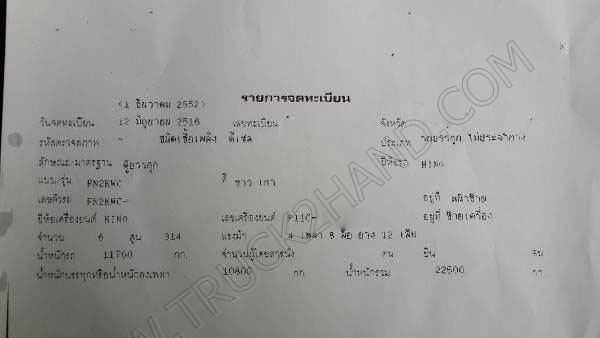 รายการจดทะเบียน
(1 ธันวาคม 2552)
วันจดทะเบียน 12 มิถุนายน 2516 เลขทะเบียน จังหวัด
รหัสตรวจสภาพ - ชนิดเชื้อเพลิง ดีเซล ประเภท รถบรรทุก ไม่ประจำทาง
ลักษณะ/มาตรฐาน ตู้บรรทุก ยี่ห้อรถ HINO
แบบ/รุ่น FN2KWC สี ขาว เทา
เลขตัวรถ FN2KWC- อยู่ที่ หน้าซ้าย
ยี่ห้อเครื่องยนต์ HINO เลขเครื่องยนต์ P11C- อยู่ที่ ซ้ายเครื่อง
จำนวน 6 สูบ 314 แรงม้า 4 เพลา 8 ล้อ ยาง 12 เส้น
น้ำหนักรถ 11700 กก. จำนวนผู้โดยสารนั่ง คน ยืน คน
น้ำหนักบรรทุกหรือน้ำหนักลงเพลา 10800 กก. น้ำหนักรวม 22500 กก
WWW.TRUCK2HAND.COM